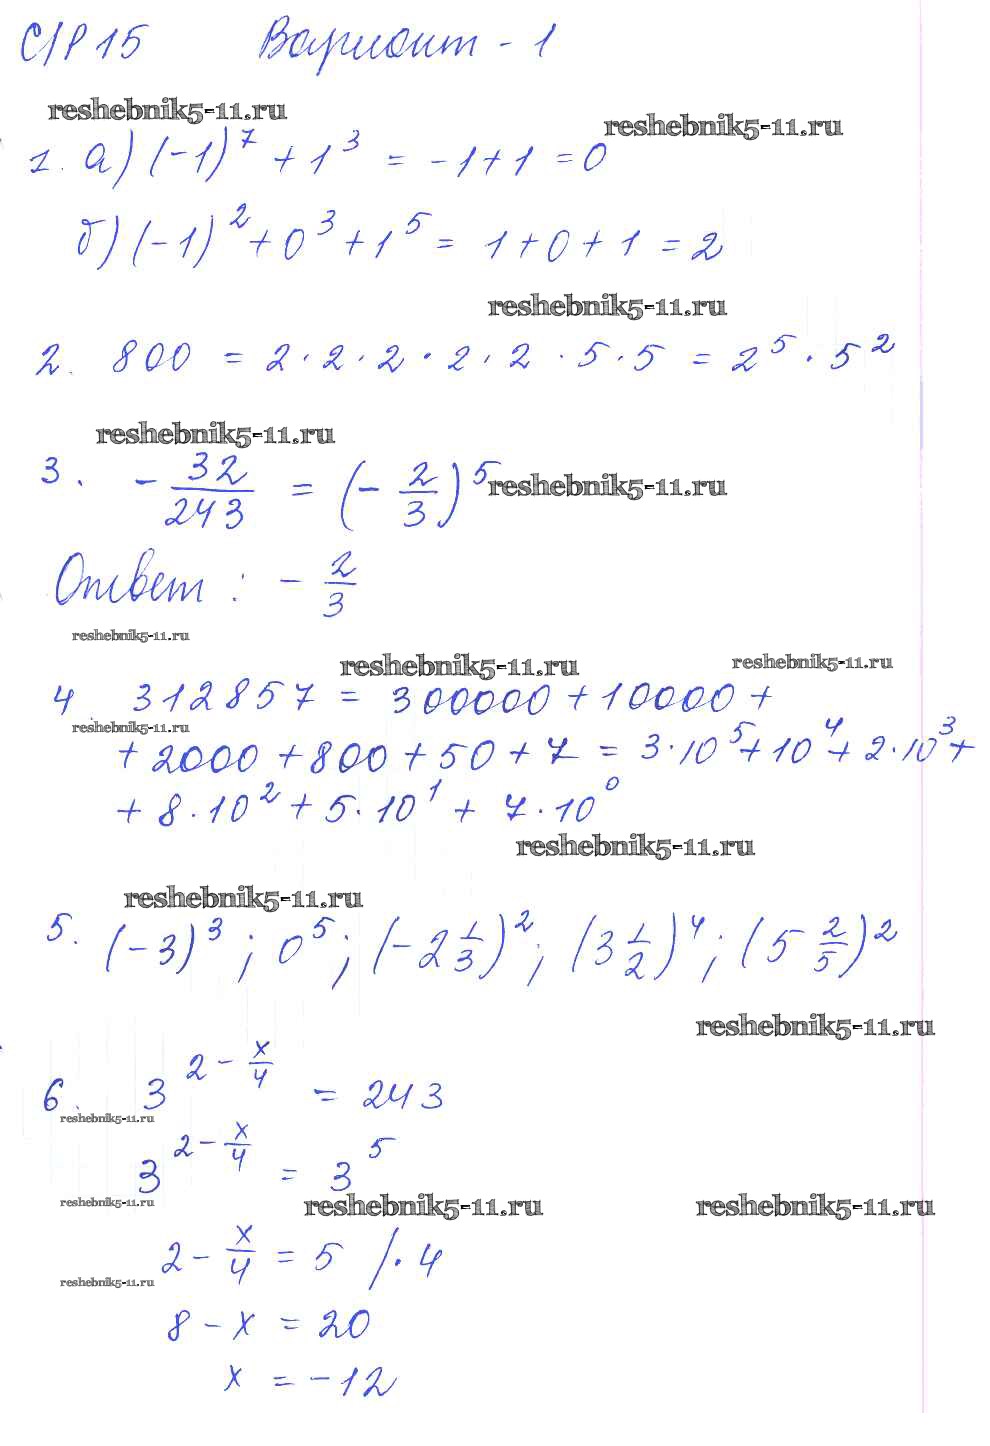 С/Р 15 Вариант - 1
reshebnik5-11.ru
reshebnik5-11.ru
1. а) (-1)⁷ + 1³ = -1 + 1 = 0
б) (-1)² + 0³ + 1⁵ = 1 + 0 + 1 = 2
reshebnik5-11.ru
2. 800 = 2 · 2 · 2 · 2 · 2 · 5 · 5 = 2⁵ · 5²
reshebnik5-11.ru
3. - 32/243 = (- 2/3)⁵
reshebnik5-11.ru
Ответ: - 2/3
reshebnik5-11.ru
reshebnik5-11.ru
reshebnik5-11.ru
4. 312857 = 300000 + 10000 +
reshebnik5-11.ru
+ 2000 + 800 + 50 + 7 = 3·10⁵ + 10⁴ + 2·10³ +
+ 8·10² + 5·10¹ + 7·10⁰
reshebnik5-11.ru
reshebnik5-11.ru
5. (-3)³; 0⁵; (-2 1/3)²; (3 1/2)⁴; (5 2/5)²
reshebnik5-11.ru
6. 3^(2 - x/4) = 243
reshebnik5-11.ru
3^(2 - x/4) = 3⁵
reshebnik5-11.ru
reshebnik5-11.ru
reshebnik5-11.ru
2 - x/4 = 5 /· 4
reshebnik5-11.ru
8 - x = 20
x = -12